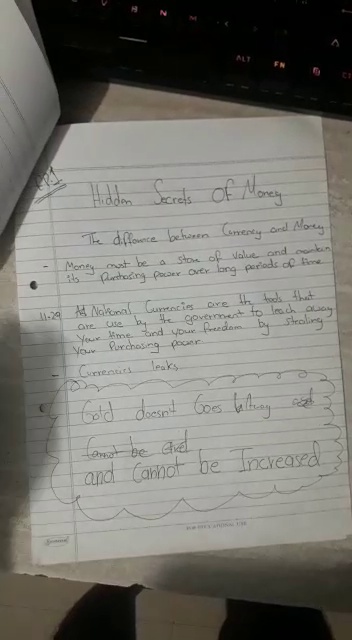 EP.1
Hidden Secrets Of Money
The diffrence between Currency and Money
- Money must be a store of value and maintain
its Purchasing power over long periods of time
11:29 All National Currencies are the tools that
are use by the government to leach away
Your time and your freedom by stealing
Your Purchasing power
- Currencies leaks
Gold doesnt Goes Away and
Cannot be
and Cannot be Increased
ALT FN